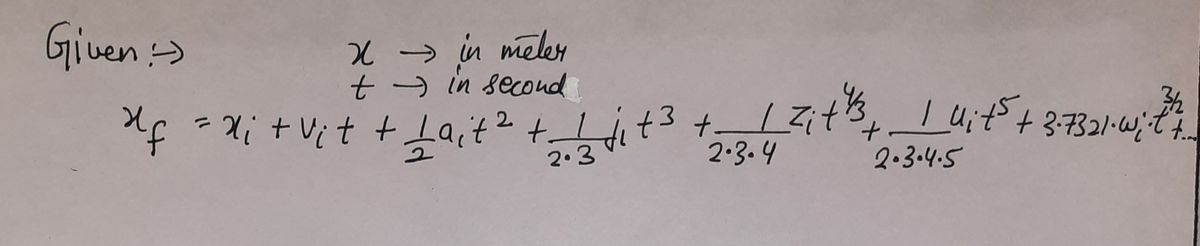 Given :→ x → in meter
t → in second
x_f = x_i + v_i t + 1/2 a_i t^2 + 1/(2·3) j_i t^3 + 1/(2·3·4) z_i t^(4/3) + 1/(2·3·4·5) u_i t^5 + 3.7321·w_i·t^(3/2) + ...